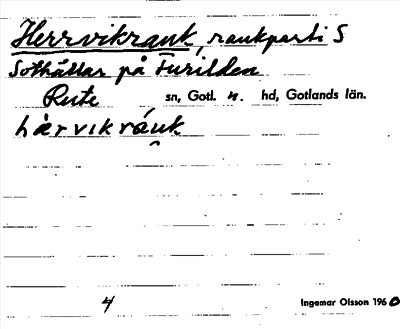 Herrvikrauk, raukparti S
Sothällar på Furilden
Rute sn, Gotl. n. hd, Gotlands län.
hàrvikráuk
4 Ingemar Olsson 1960